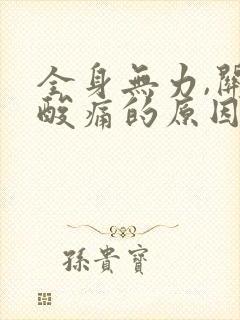 全身無力,關
酸痛的原因
孫貴寶